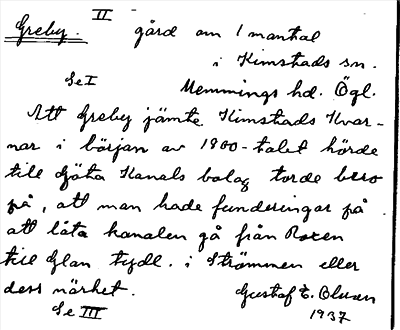 II
Greby. gård om 1 mantal
i Kimstads sn.
Se I Memmings hd. Ögl.
Att Greby jämte Kimstads Kvar-
nar i början av 1900-talet hörde
till Göta Kanals bolag torde bero
på, att man hade funderingar på
att låta kanalen gå från Roxen
till Glan tydl. i Strömmen eller
dess närhet. Gustaf E. Olsson
Se III 1937